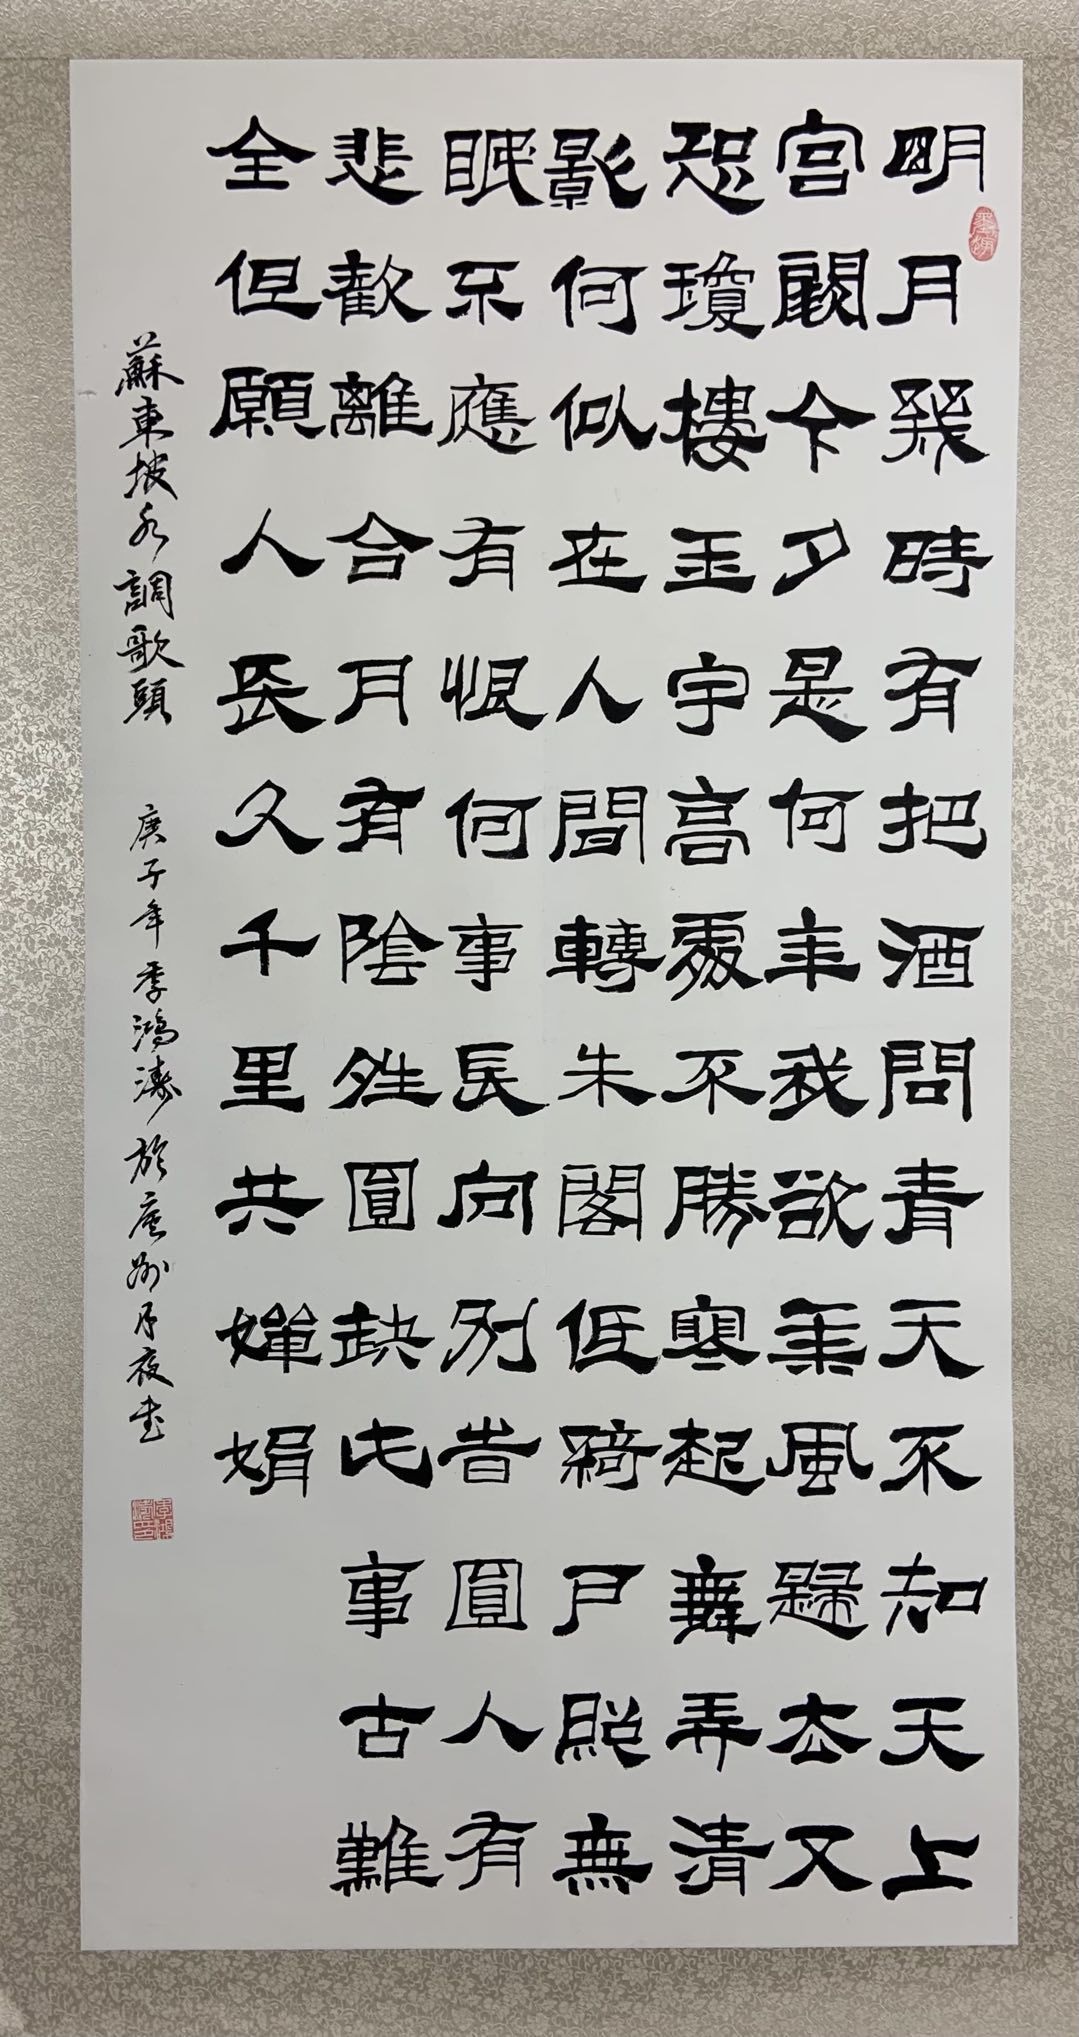 明月幾時有把酒問青天不知天上
宮闕今夕是何年我欲乘風歸去又
恐瓊樓玉宇高處不勝寒起舞弄清
影何似在人間轉朱閣低綺戶照無
眠不應有恨何事長向別旹圓人有
悲歡離合月有陰夝圓缺此事古難
全但願人長久千里共嬋娟
蘇東坡水調歌頭 庚子年季鴻濤於州月夜書